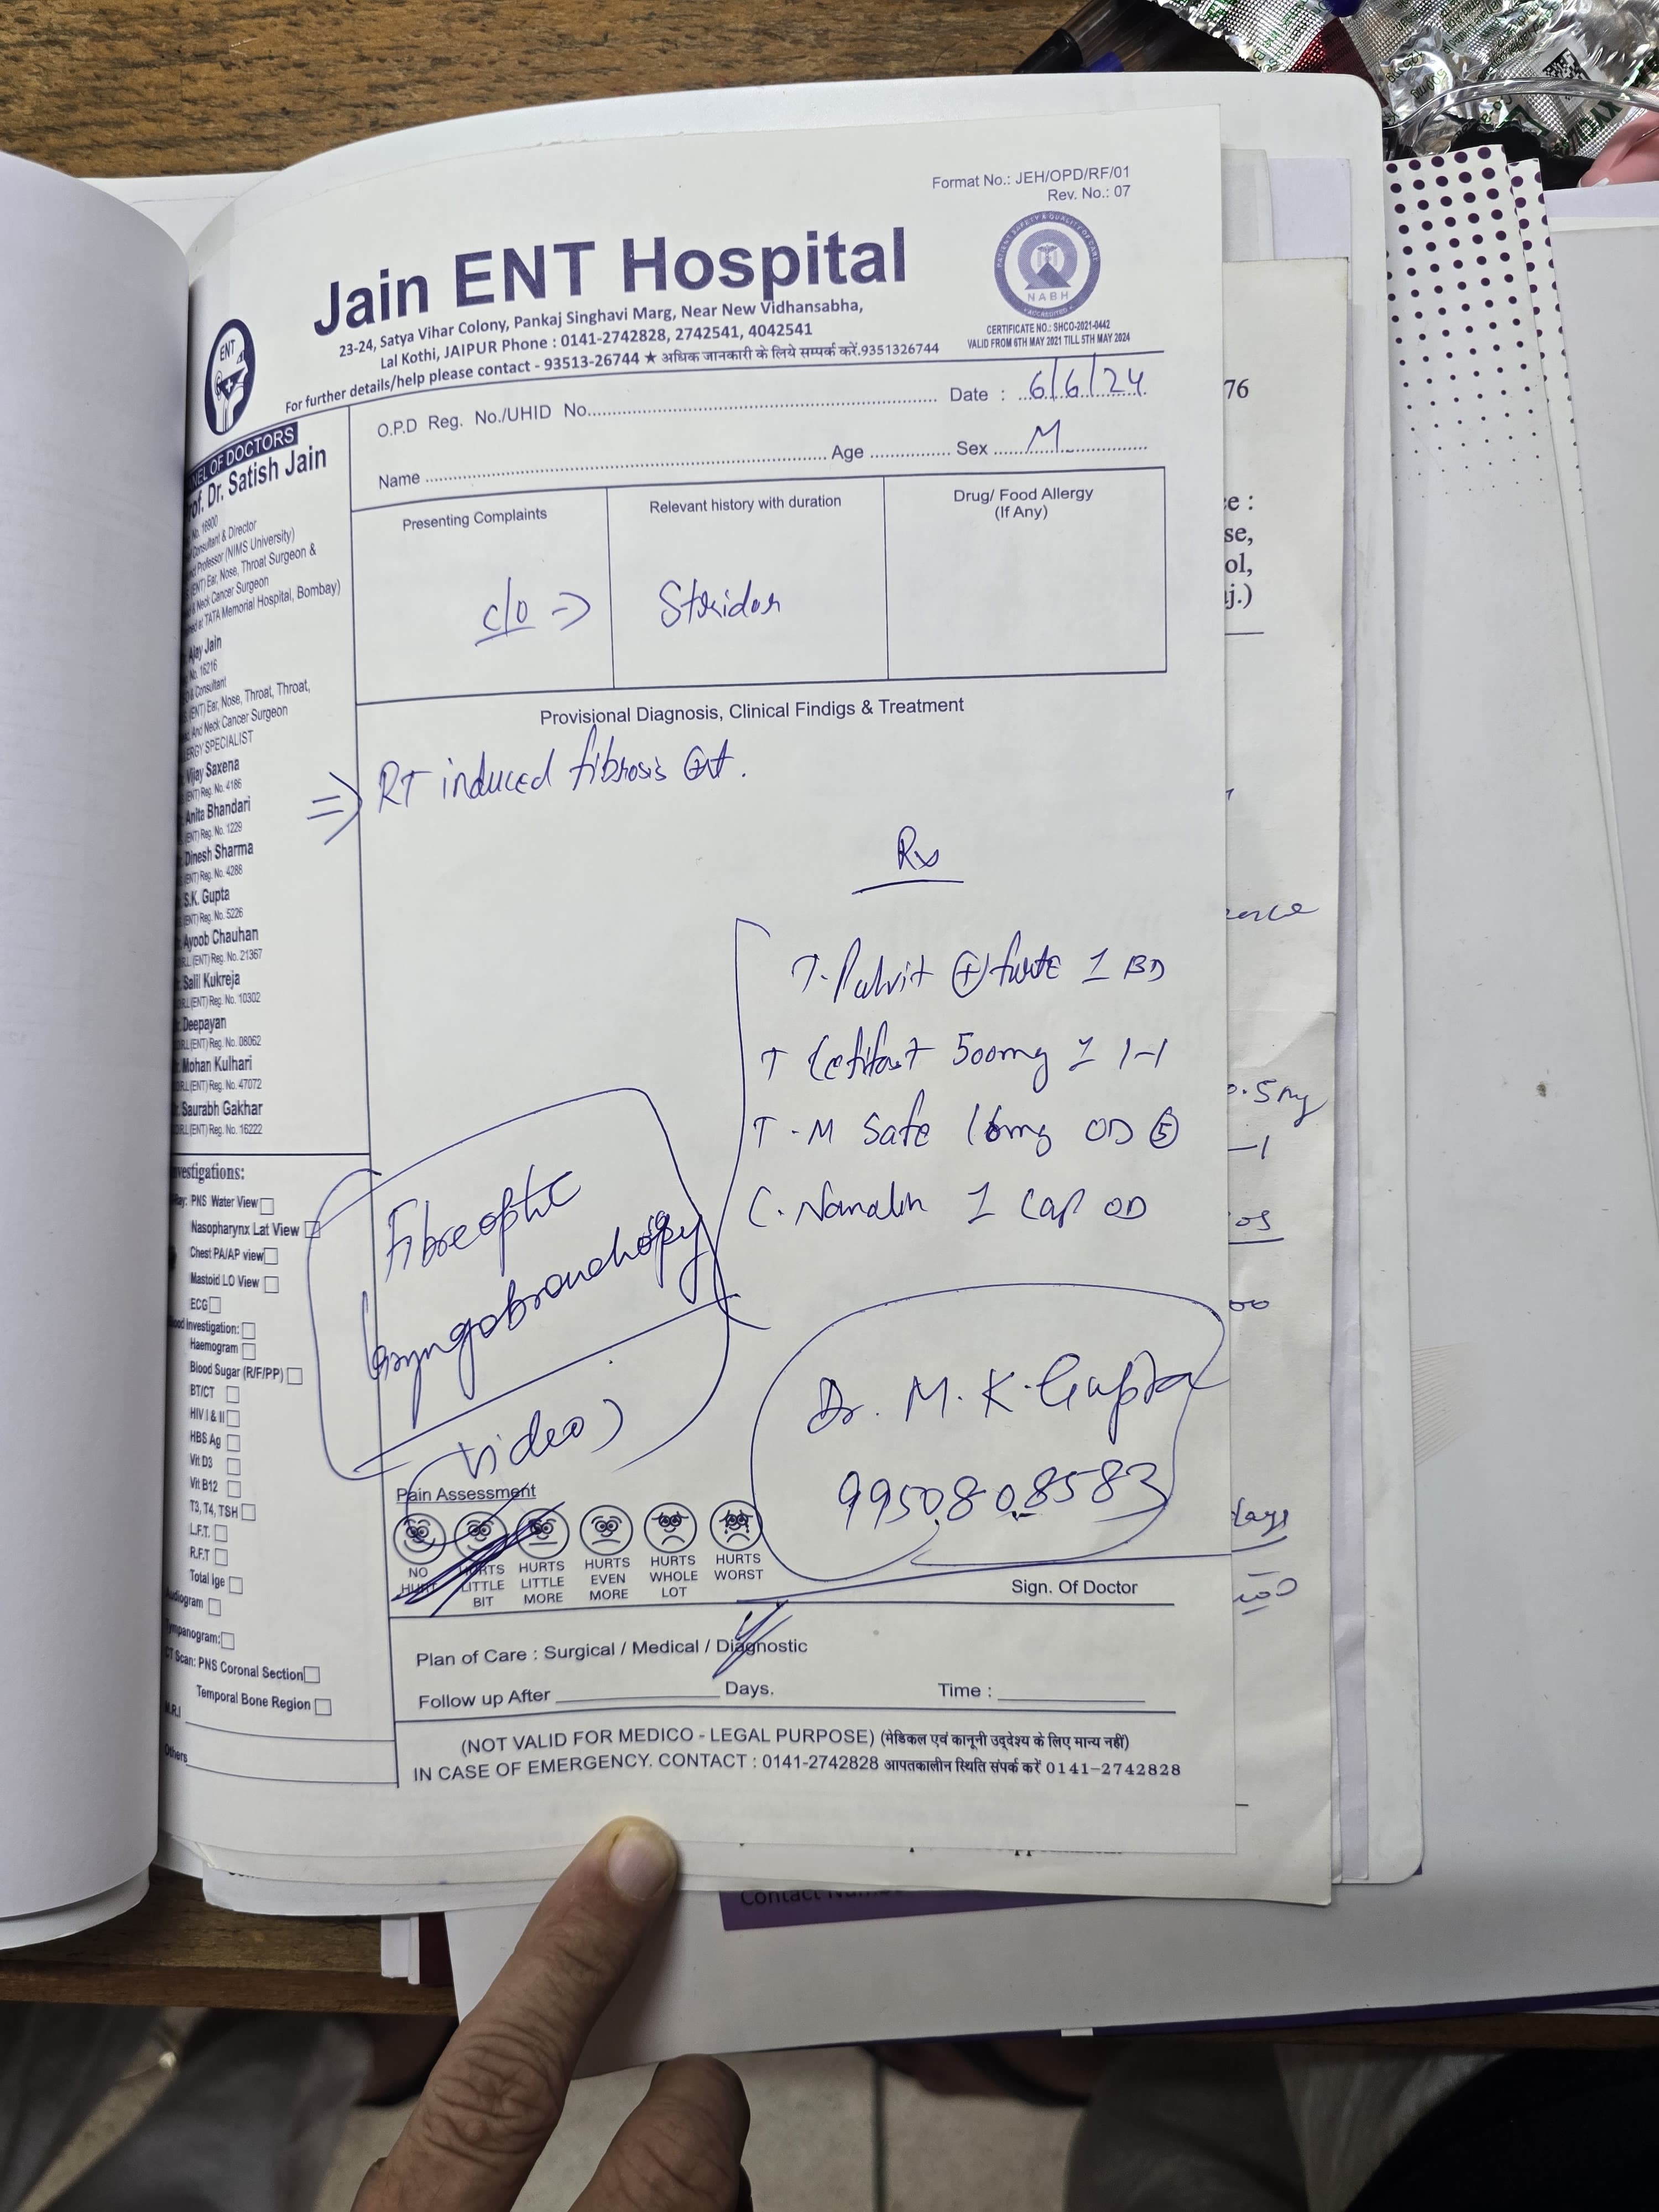 Format No.: JEH/OPD/RF/01
Rev. No.: 07
Jain ENT Hospital
23-24, Satya Vihar Colony, Pankaj Singhavi Marg, Near New Vidhansabha,
Lal Kothi, JAIPUR Phone : 0141-2742828, 2742541, 4042541
For further details/help please contact - 93513-26744 ★ अधिक जानकारी के लिये सम्पर्क करें.9351326744
PATIENT SAFETY & QUALITY OF CARE
NABH
ACCREDITED
CERTIFICATE NO.: SHCO-2021-0442
VALID FROM 6TH MAY 2021 TILL 5TH MAY 2024
ENT
O.P.D Reg. No./UHID No. Date : 6/6/24
Name Age Sex M
Presenting Complaints
Relevant history with duration
Drug/ Food Allergy
(If Any)
c/o ⇒ Stridor
Provisional Diagnosis, Clinical Findigs & Treatment
⇒ RT induced fibrosis
Rx
T. forte 1 BD
T 500mg 1 1-1
T - M Safe 16mg OD 5
C. 1 Cap OD
Fibreoptic
(video)
Dr. M. K. Gupta
9950808583
OF DOCTORS
Dr. Satish Jain
No. 16900
Consultant & Director
Professor (NIMS University)
(ENT) Ear, Nose, Throat Surgeon &
& Neck Cancer Surgeon
at TATA Memorial Hospital, Bombay)
Ajay Jain
No. 16216
Consultant
(ENT) Ear, Nose, Throat, Throat,
And Neck Cancer Surgeon
SPECIALIST
Vijay Saxena
(ENT) Reg. No. 4186
Anita Bhandari
(ENT) Reg. No. 1229
Dinesh Sharma
(ENT) Reg. No. 4288
S.K. Gupta
(ENT) Reg. No. 5226
Ayoob Chauhan
(ENT) Reg. No. 21367
Salil Kukreja
(ENT) Reg. No. 10302
Deepayan
(ENT) Reg. No. 08062
Mohan Kulhari
(ENT) Reg. No. 47072
Saurabh Gakhar
(ENT) Reg. No. 16222
PNS Water View
Nasopharynx Lat View
Chest PA/AP view
Mastoid LO View
ECG
Investigation:
Haemogram
Blood Sugar (R/F/PP)
BT/CT
HIV I & II
HBS Ag
Vit D3
Vit B12
T3, T4, TSH
L.F.T.
R.F.T
Total Ige
Scan: PNS Coronal Section
Temporal Bone Region
M.R.I
Others
Pain Assessment
NO HURT
HURTS LITTLE BIT
HURTS LITTLE MORE
HURTS EVEN MORE
HURTS WHOLE LOT
HURTS WORST
Sign. Of Doctor
Plan of Care : Surgical / Medical / Diagnostic
Follow up After Days. Time :
(NOT VALID FOR MEDICO - LEGAL PURPOSE) (मेडिकल एवं कानूनी उद्देश्य के लिए मान्य नहीं)
IN CASE OF EMERGENCY. CONTACT : 0141-2742828 आपतकालीन स्थिति संपर्क करें 0141-2742828
76
0.5mg
days